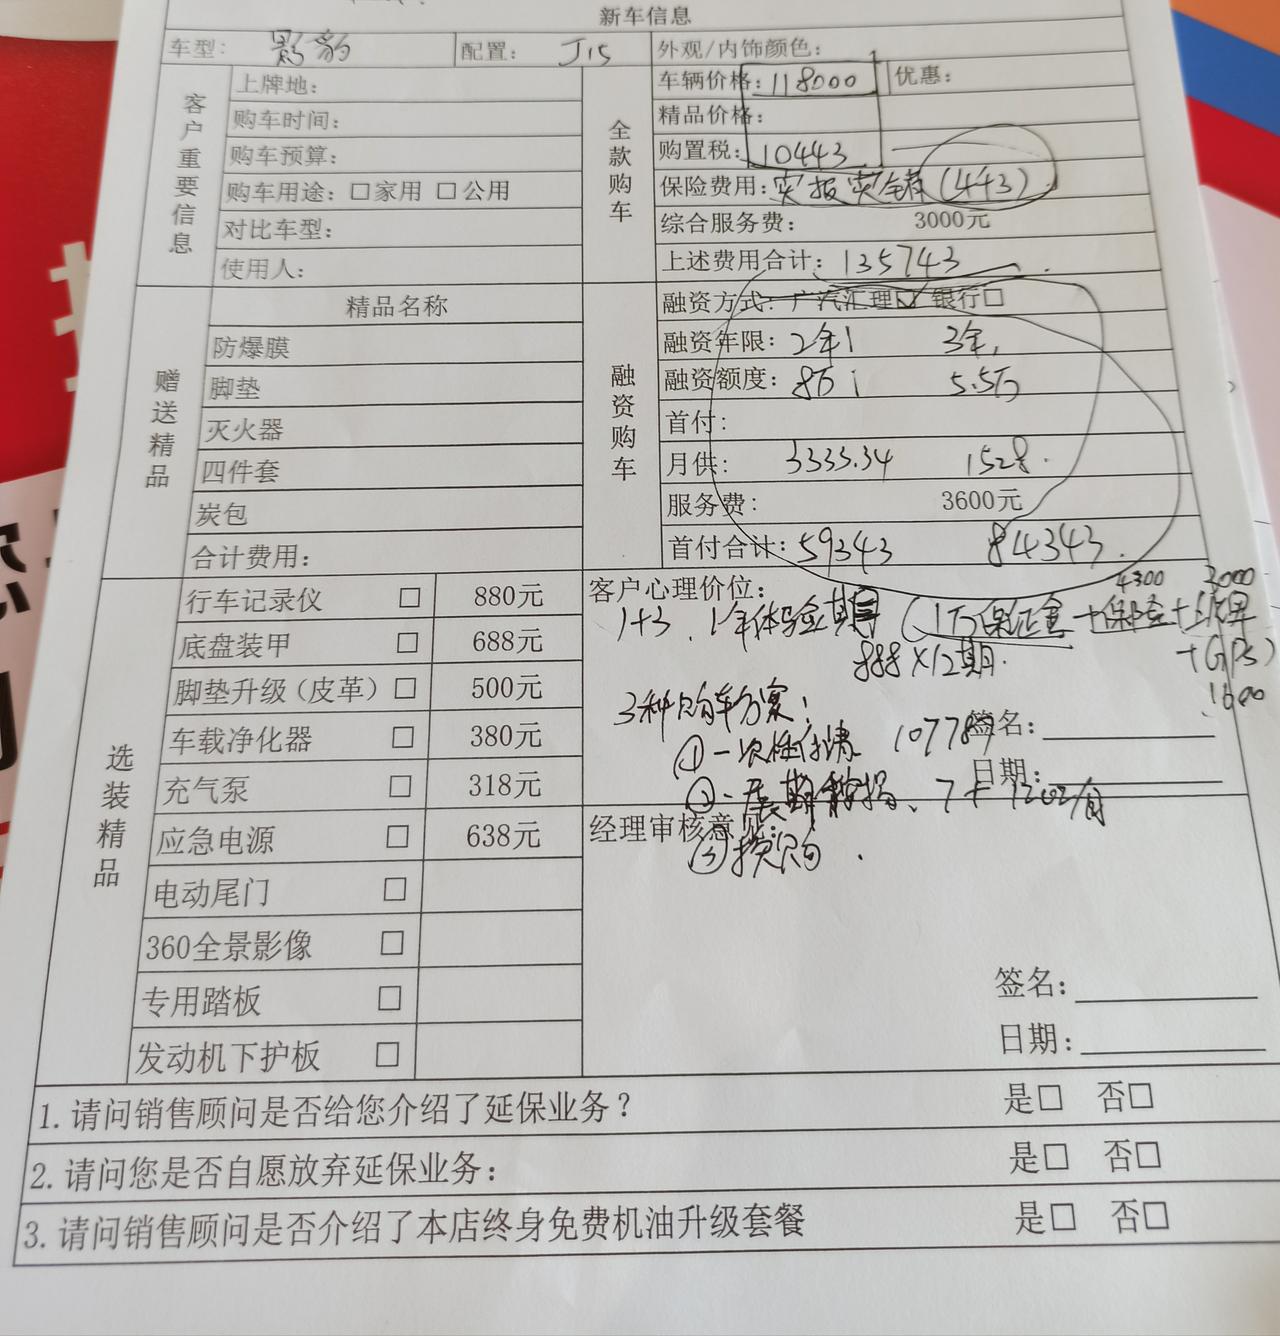 新车信息
车型: 影豹 配置: J15 外观/内饰颜色:
客户重要信息
上牌地:
购车时间:
购车预算:
购车用途: □家用 □公用
对比车型:
使用人:
全款购车
车辆价格: 118000 优惠:
精品价格:
购置税: 10443
保险费用: 实报实销 (443)
综合服务费: 3000元
上述费用合计: 135743
赠送精品
精品名称
防爆膜
脚垫
灭火器
四件套
炭包
合计费用:
融资购车
融资方式: 广汽汇理☑ 银行□
融资年限: 2年 3年
融资额度: 8万 5.5万
首付:
月供: 3333.34 1528.
服务费: 3600元
首付合计: 59343 84343.
选装精品
行车记录仪 □ 880元
底盘装甲 □ 688元
脚垫升级（皮革）□ 500元
车载净化器 □ 380元
充气泵 □ 318元
应急电源 □ 638元
电动尾门 □
360全景影像 □
专用踏板 □
发动机下护板 □
客户心理价位:
4300 3000
1+3、1年体验期 (1万保证金+保险+上牌
+GPS)
1600
888×12期.
3种购车方案:
①一次性付清 107789
签名:
日期:
1202/月
经理审核意见:
③换购.
签名:
日期:
1.请问销售顾问是否给您介绍了延保业务？ 是□ 否□
2.请问您是否自愿放弃延保业务: 是□ 否□
3.请问销售顾问是否介绍了本店终身免费机油升级套餐 是□ 否□